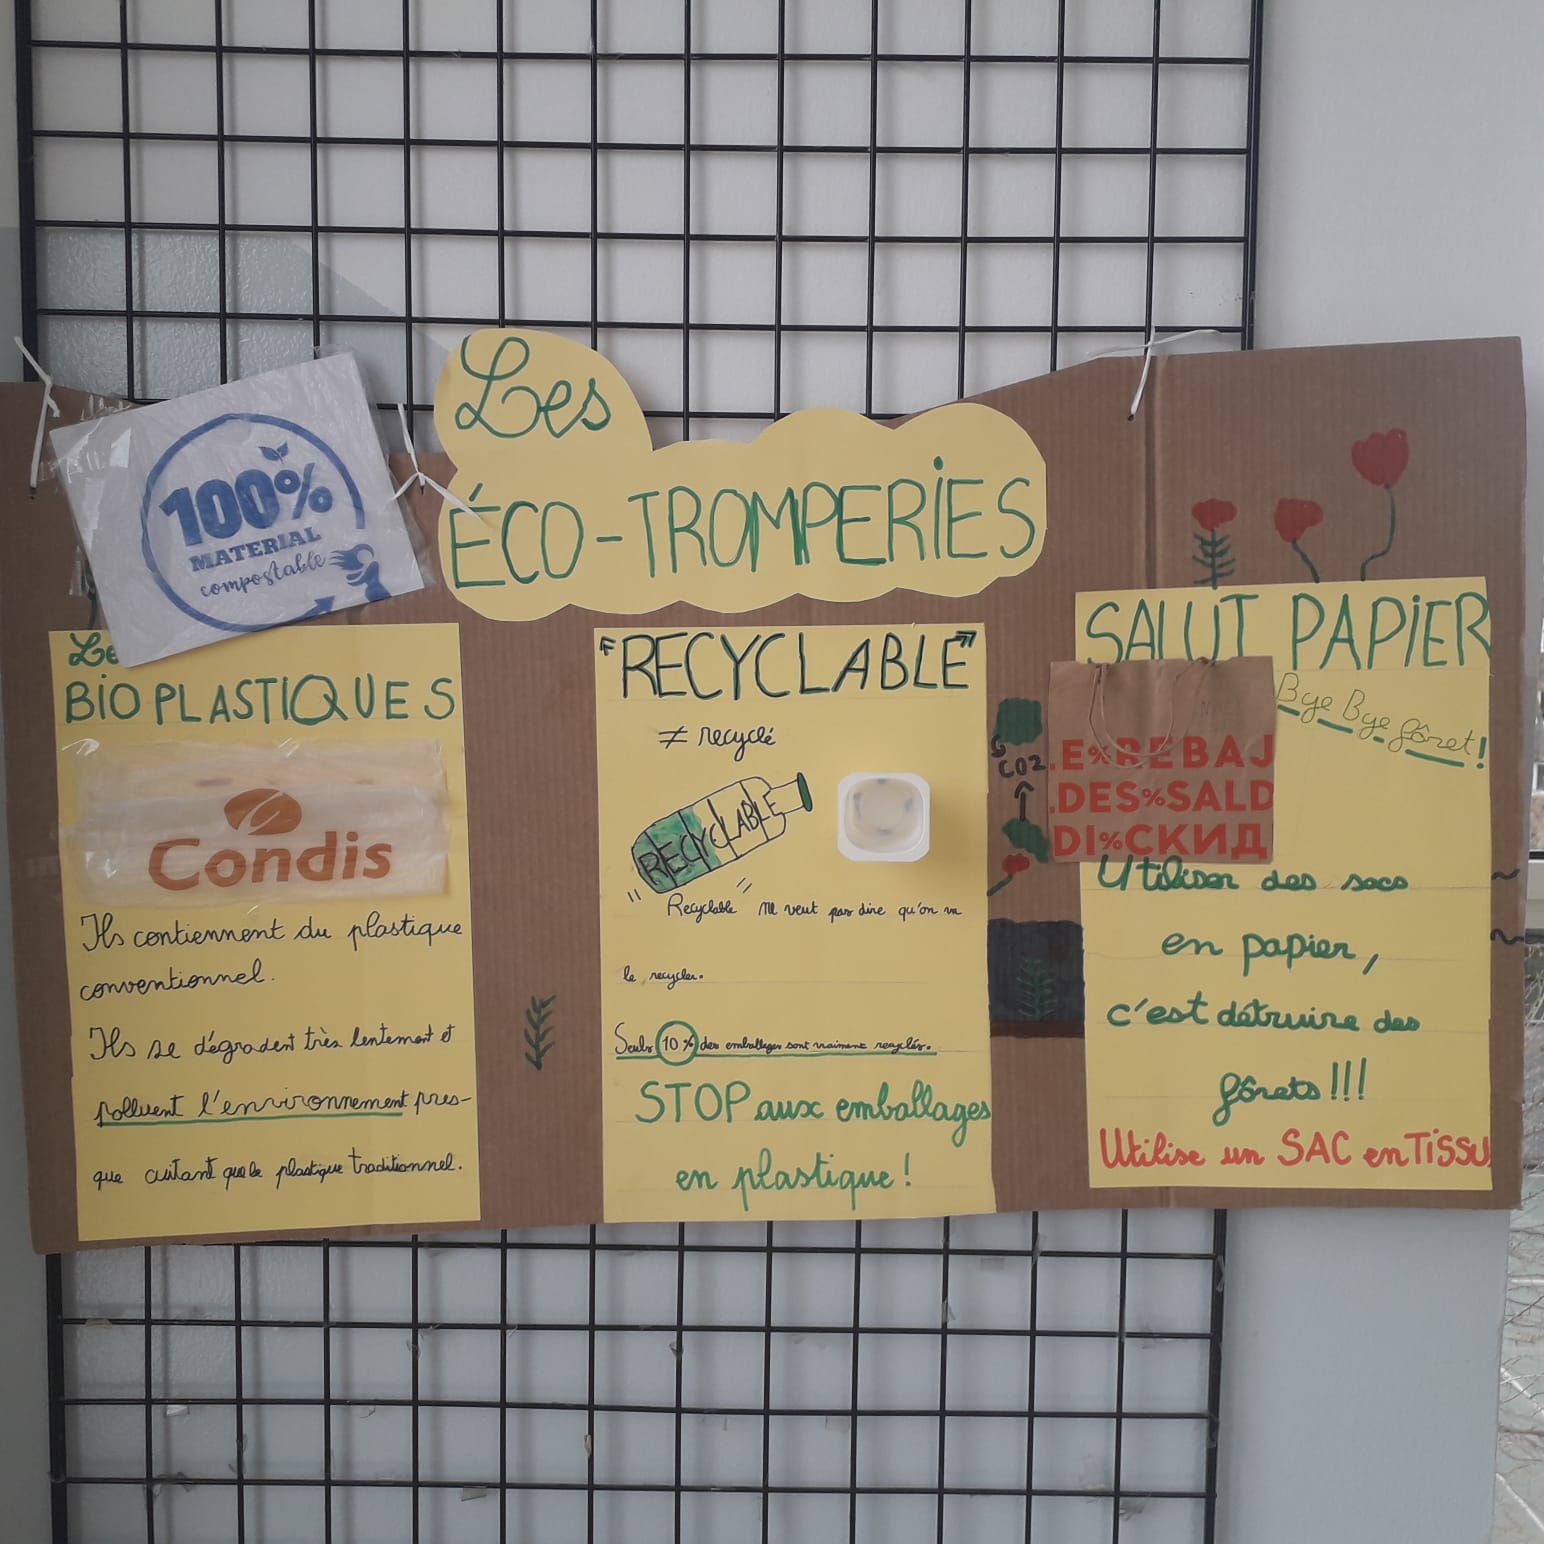 Les
ÉCO-TROMPERIES
100%
MATERIAL
compostable
Les
BIOPLASTIQUES
Condis
Ils contiennent du plastique
conventionnel.
Ils se dégradent très lentement et
polluent l'environnement pres-
que autant que le plastique traditionnel.
"RECYCLABLE"
≠ recyclé
RECYCLABLE
"Recyclable" ne veut pas dire qu'on va
le recycler.
Seuls 10% des emballages sont vraiment recyclés.
STOP aux emballages
en plastique!
CO2
SALUT PAPIER
Bye Bye fôret!
.E%REBAJ
.DES%SALD
DI%СКИД
Utiliser des sacs
en papier,
c'est détruire des
fôrets!!!
Utilise un SAC en TISSU